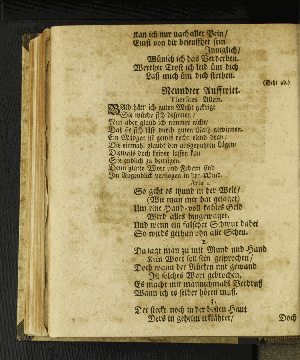 kan ich nur nach aller Pein/
Einst von dir beseufftzet sein
Inniglich/
Wünsch ich das Verderben.
Werther Trost ich leid üm dich
Laß mich üm dich sterben.
(Geht ab.)
Neundter Aufftritt.
Thersites Allein.
Und hätt ich guten Muht gekriegt
Sie würde sich besinnen/
Nun aber glaub ich nimmer nicht/
Daß sie sich läst durch guten Glantz gewinnen.
Ein Mädgen ist gewiß recht elend dran/
Die niemahl glaubt den ausgeputzten Lügen/
Sie endlich zu betriegen.
Denn glatte Wort und Federn sind
Im Augenblick verflogen in der Wind.
Aria 1.
So geht es itzund in der Welt/
(Wie man mir hat gesaget)
Um eine Hand-voll kahles Geld
Wird alles hingewaget.
Und wenn ein falscher Schwur dabei
So wirds gethan ohn alle Scheu.
2.
Da sagt man zu mit Mund und Hand
Kein Wort soll sein gesprochen/
Doch wann der Rücken nur gewand
Ist solches Wort gebrochen.
Es macht mir mannichmahl Verdruß
Wann ich es selber hören muß.
3.
Der steckt noch in der besten Haut
Ders in geheim erkläret/
Doch